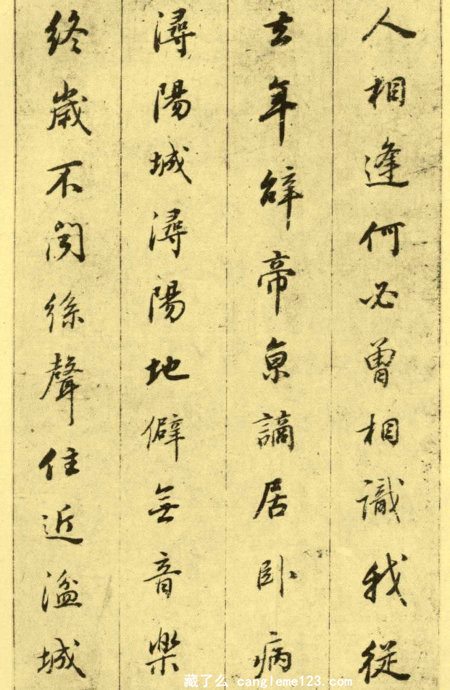 人相逢何必曾相識我從
去年辞帝京謫居卧病
潯陽城潯陽地僻無音樂
終歲不聞絲聲住近湓城
藏了么 cangleme123.com